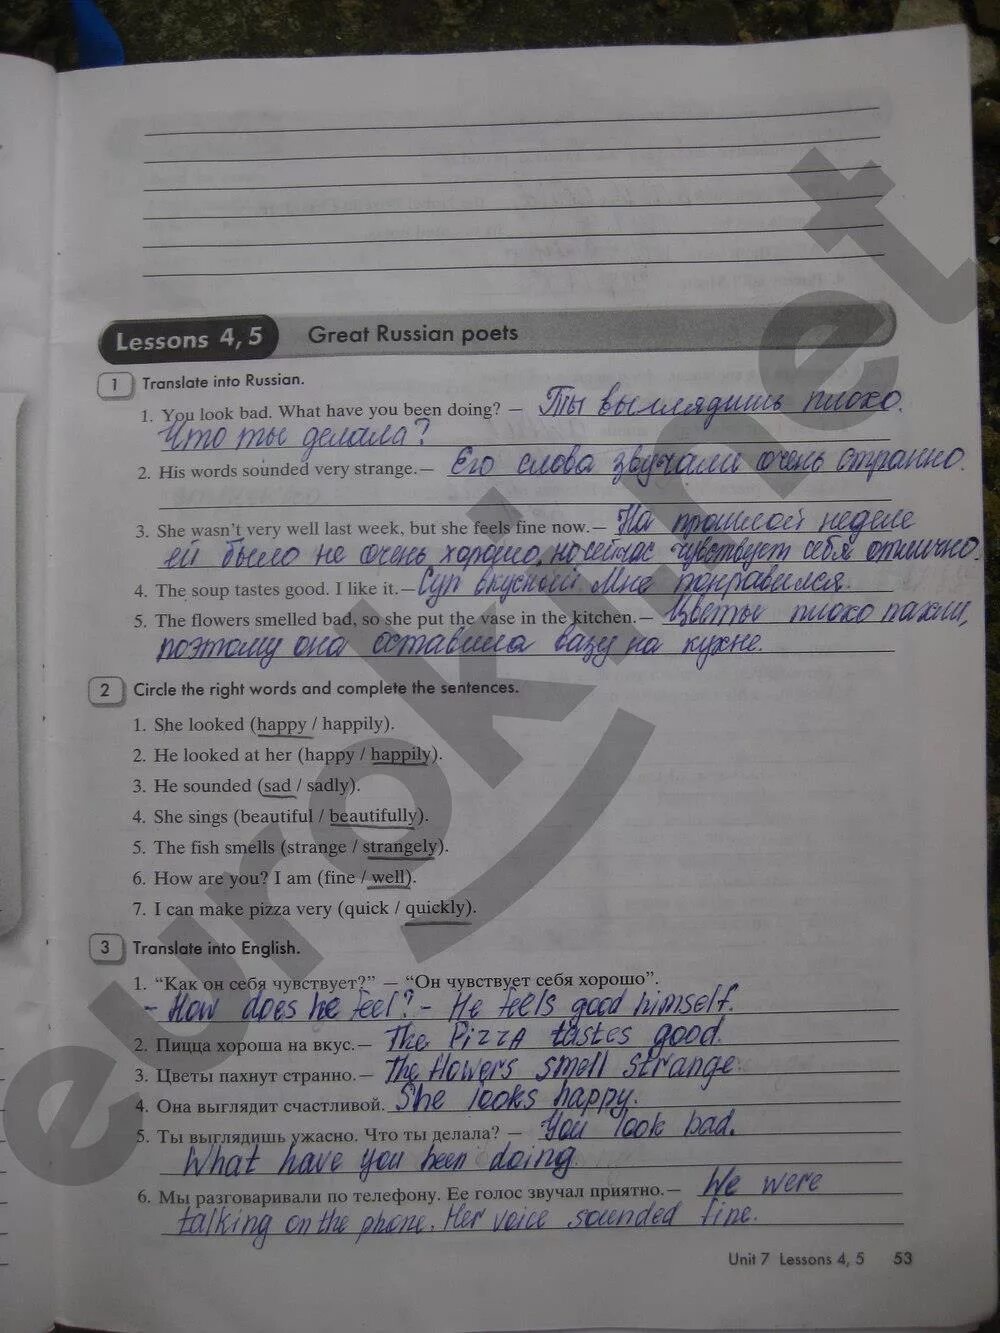 Lessons 4, 5 Great Russian poets
1 Translate into Russian.
1. You look bad. What have you been doing? — Ты выглядишь плохо.
Что ты делала?
2. His words sounded very strange. — Его слова звучали очень странно.
3. She wasn't very well last week, but she feels fine now. — На прошлой неделе
ей было не очень хорошо, но сейчас чувствует себя отлично.
4. The soup tastes good. I like it. — Суп вкусный. Мне понравился.
5. The flowers smelled bad, so she put the vase in the kitchen. — Цветы плохо пахли,
поэтому она оставила вазу на кухне.
2 Circle the right words and complete the sentences.
1. She looked (happy / happily).
2. He looked at her (happy / happily).
3. He sounded (sad / sadly).
4. She sings (beautiful / beautifully).
5. The fish smells (strange / strangely).
6. How are you? I am (fine / well).
7. I can make pizza very (quick / quickly).
3 Translate into English.
1. “Как он себя чувствует?” — “Он чувствует себя хорошо”.
- How does he feel? - He feels good himself.
2. Пицца хороша на вкус. — The PIZZA tastes good.
3. Цветы пахнут странно. — The flowers smell strange.
4. Она выглядит счастливой. She looks happy.
5. Ты выглядишь ужасно. Что ты делала? — You look bad.
What have you been doing
6. Мы разговаривали по телефону. Ее голос звучал приятно. — We were
talking on the phone. Her voice sounded fine.
Unit 7 Lessons 4, 5 53
euroki.net